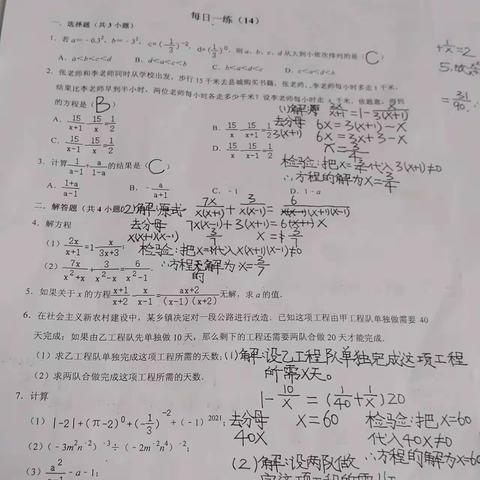 每日一练（14）
一、选择题（共3小题）
1. 若a=-0.3², b=-3⁻², c=(-1/3)⁻², d=(-1/3)⁰, 则a、b、c、d从大到小依次排列的是( C )
A. a<b<c<d B. d<a<c<b C. b<a<d<c D. c<a<d<b
2. 张老师和李老师同时从学校出发，步行15千米去县城购买书籍，张老师比李老师每小时多走1千米，
结果比李老师早到半小时，两位老师每小时各走多少千米？设李老师每小时走x千米，依题意，得到
的方程是( B )
A. 15/(x+1) - 15/x = 1/2 B. 15/x - 15/(x+1) = 1/2
C. 15/(x-1) - 15/x = 1/2 D. 15/x - 15/(x-1) = 1/2
(1)解: 2x/(x+1) = 1 - x/3(x+1)
去分母 6x = 3(x+1) - x
3(x+1) 6x = 3x+3-x
x = 3/4
检验: 把x=3/4代入3(x+1)≠0
∴方程的解为x=3/4
3. 计算 1/(a-1) + a/(1-a) 的结果是( C )
A. (1+a)/(a-1) B. -a/(a+1) C. -1 D. 1-a
二、解答题（共4小题）
4. 解方程
(1) 2x/(x+1) = 1 - x/(3x+3);
(2) 7x/(x²+x) + 3/(x²-x) = 6/(x²-1).
(2)解:原式
7x/x(x+1) + 3/x(x-1) = 6/(x+1)(x-1)
去分母 7x(x-1) + 3(x+1) = 6x
x(x+1)(x-1) x = 3/7
代入x(x+1)(x-1)≠0
∴方程的解为x=3/7
5. 如果关于x的方程 (x+1)/(x+2) - x/(x-1) = (ax+2)/((x-1)(x+2)) 无解，求a的值.
6. 在社会主义新农村建设中，某乡镇决定对一段公路进行改造. 已知这项工程由甲工程队单独做需要40
天完成；如果由乙工程队先单独做10天，那么剩下的工程还需要两队合做20天才能完成.
(1) 求乙工程队单独完成这项工程所需的天数；
(2) 求两队合做完成这项工程所需的天数.
(1)解:设乙工程队单独完成这项工程
所需x天。
1 - 10/x = (1/40 + 1/x)20
去分母 x=60 检验:把x=60
40x 代入40x≠0
∴方程的解为x=60
(2)解:设两队做
7. 计算
(1) |-2|+(π-2)⁰+(-1/3)⁻²+(-1)²⁰²¹
(2) (-3m²n⁻²)⁻³÷(-2m⁻²n⁴)⁻²;
(3) a²/(a-1) - a - 1;